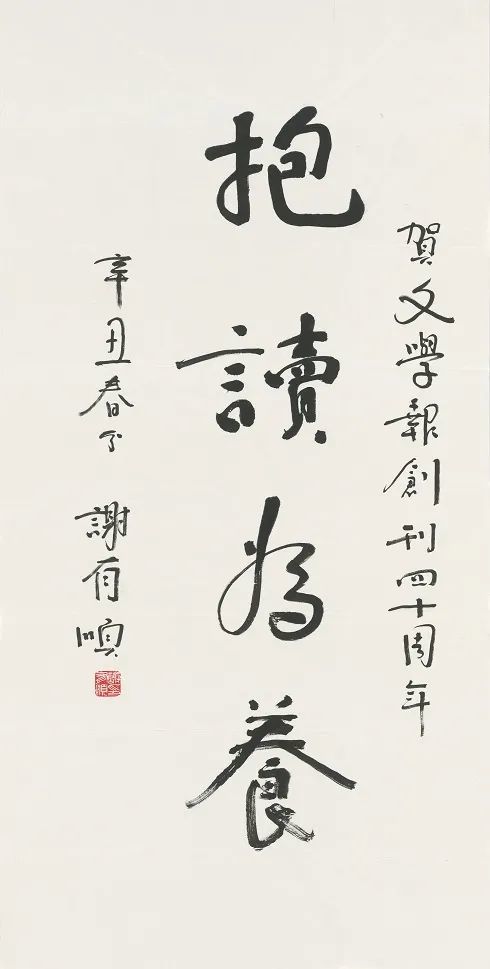 賀文學報創刊四十周年
抱讀為養
辛丑春分 謝有順